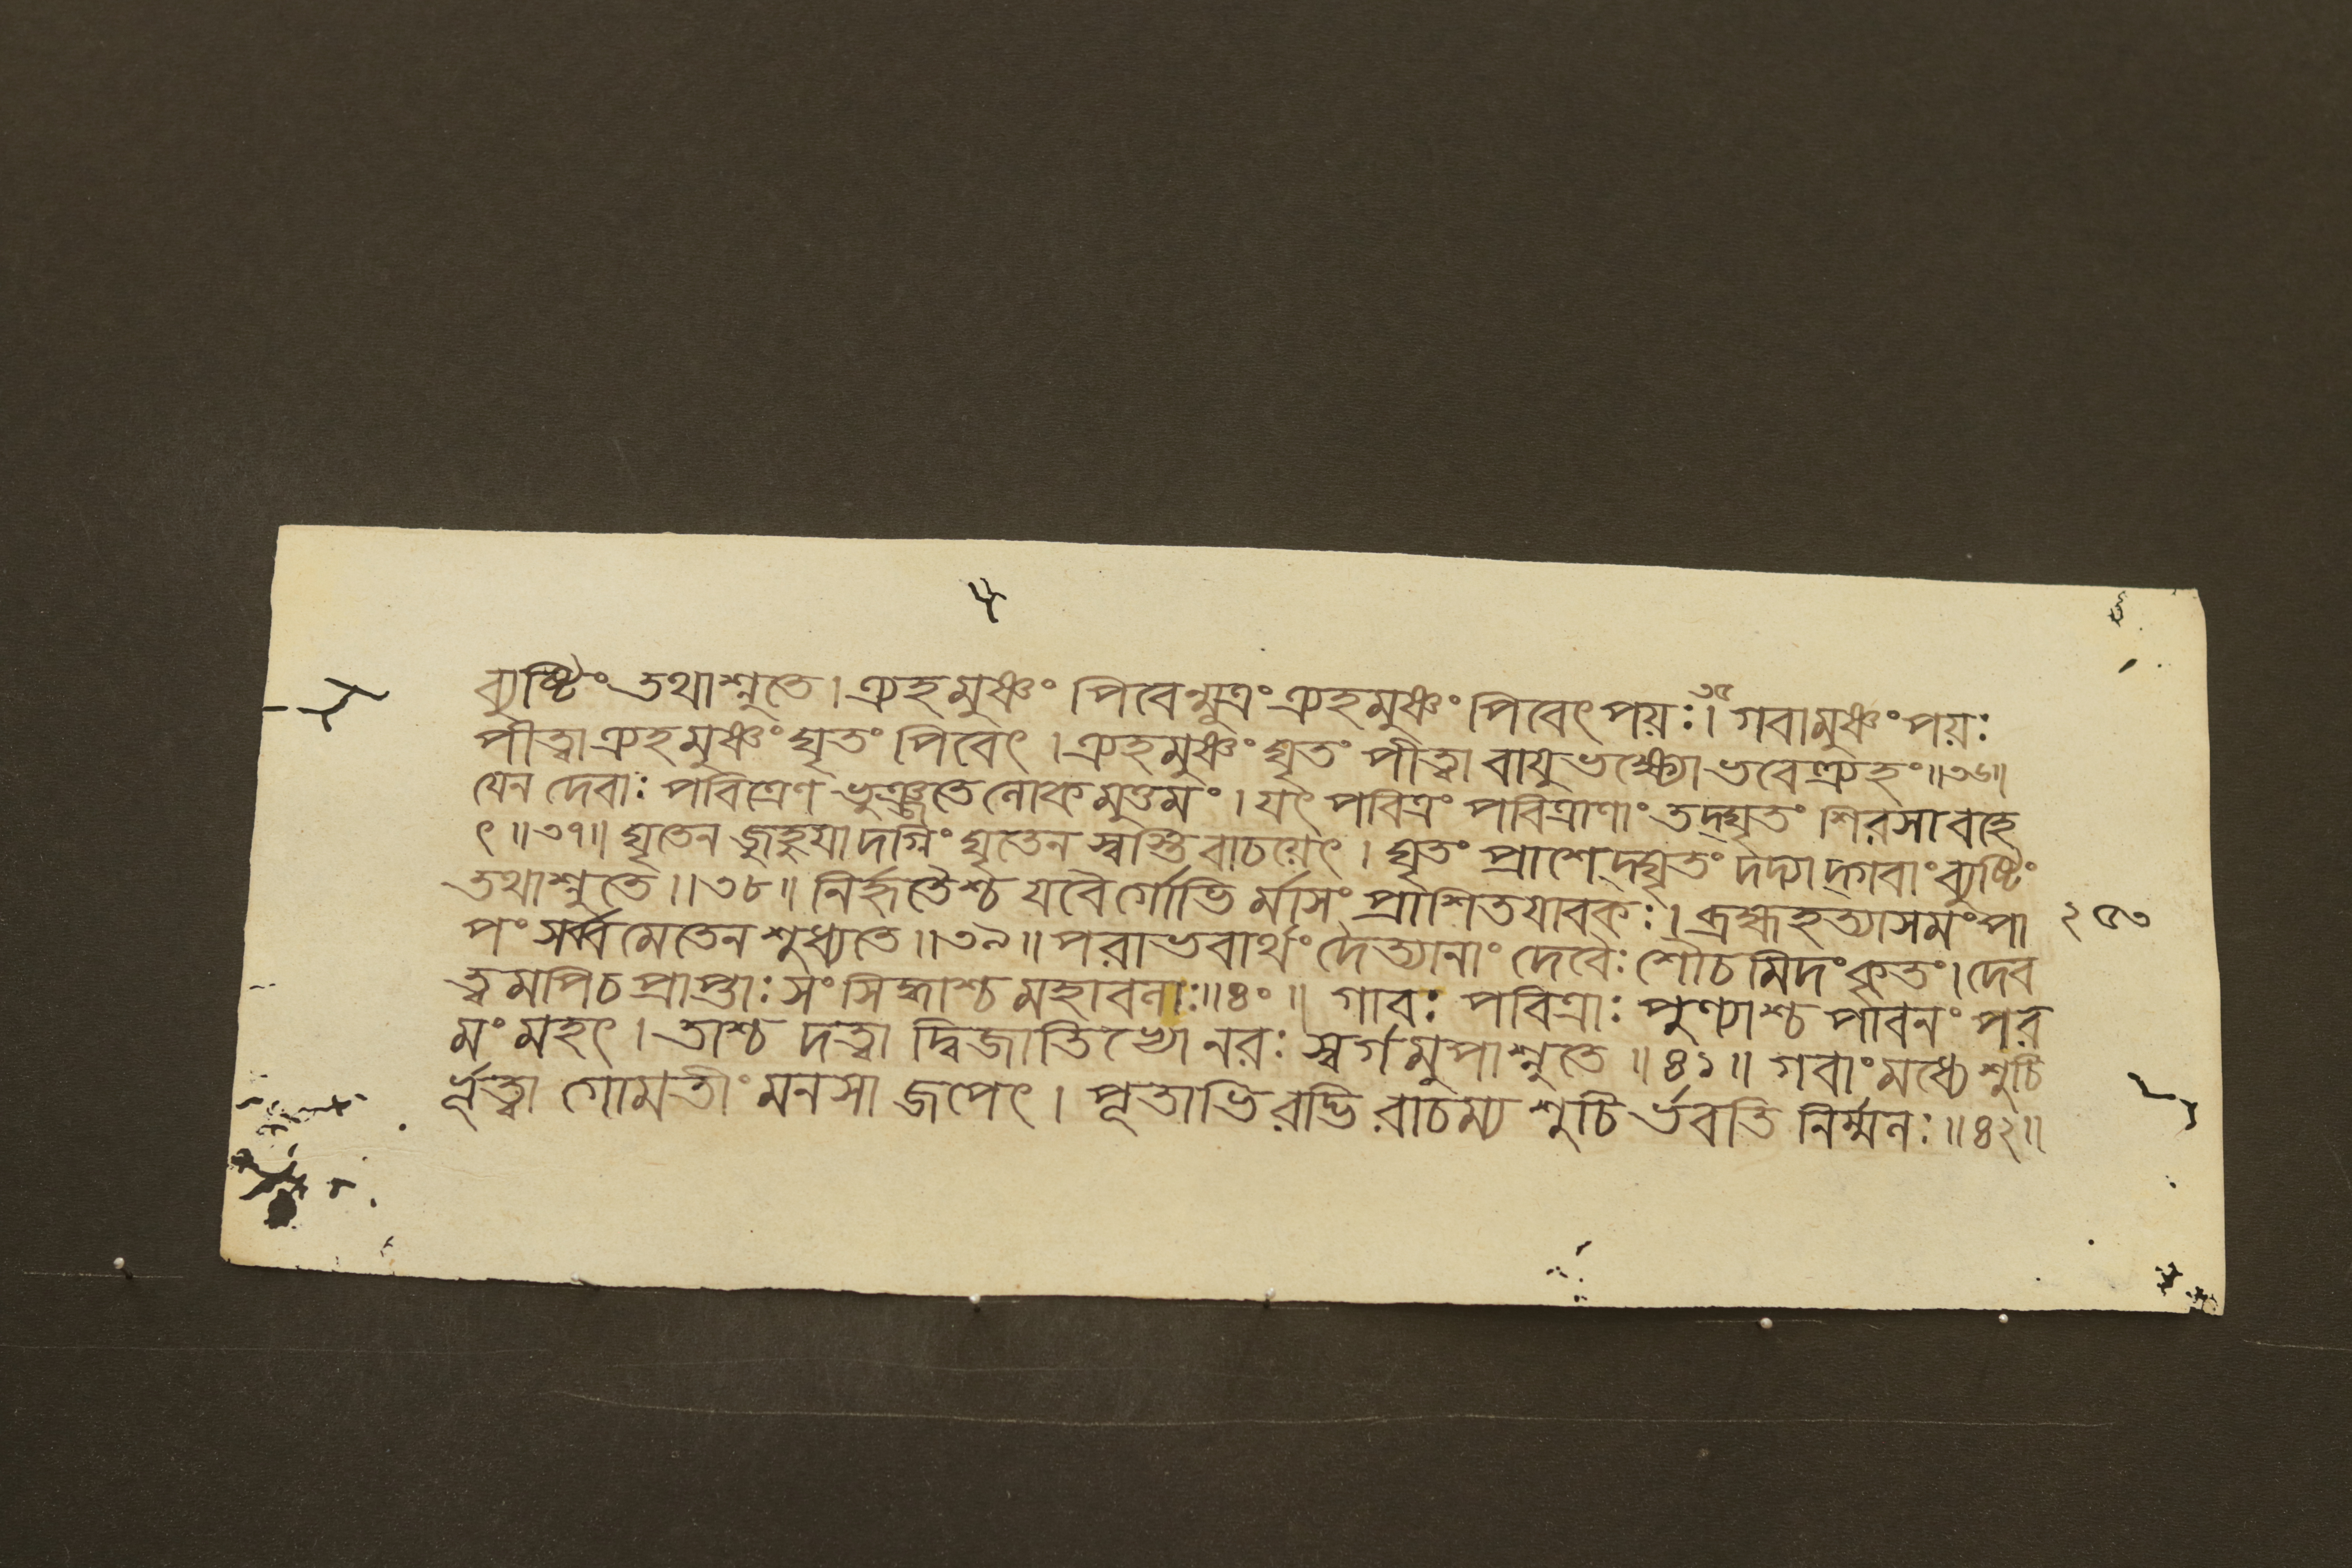 ব্যুষ্টিং তথাশ্নুতে । ত্র্যহমুষ্ণং পিবেন্মূত্রং ত্র্যহমুষ্ণং পিবেৎ পয়ঃ ।৩৫ গবামুষ্ণং পয়ঃ
পীত্বা ত্র্যহমুষ্ণং ঘৃতং পিবেৎ । ত্র্যহমুষ্ণং ঘৃতং পীত্বা বায়ুভক্ষ্যো ভবেত্র্যহং ॥৩৬॥
যেন দেবাঃ পবিত্রেণ ভুঞ্জতে লোকমুত্তমং । যৎ পবিত্রং পবিত্রাণাং তদ্ঘৃতং শিরসা বহে
ৎ ॥৩৭॥ ঘৃতেন জুহুয়াদগ্নিং ঘৃতেন স্বস্তি বাচয়েৎ । ঘৃতং প্রাশেদ্ঘৃতং দদ্যাদ্গবাং ব্যুষ্টিং
তথাশ্নুতে ॥৩৮॥ নির্হৃতৈশ্চ যবৈর্গোভির্মাসং প্রাশিতযাবকঃ । ব্রহ্মহত্যাসমং পা
পং সর্ব্বমেতেন শুধ্যতে ॥৩৯॥ পরাভবার্থং দৈত্যানাং দেবৈঃ শৌচমিদং কৃতং । দেব
ত্বমপি চ প্রাপ্তাঃ সংসিদ্ধাশ্চ মহাবলাঃ ॥৪০॥ গাবঃ পবিত্রাঃ পুণ্যাশ্চ পাবনং পর
মং মহৎ । তাশ্চ দত্ত্বা দ্বিজাতিভ্যো নরঃ স্বর্গমুপাশ্নুতে ॥৪১॥ গবাং মধ্যে শুচি
র্ভূত্বা গোমতীং মনসা জপেৎ । পূতাভিরদ্ভিরাচম্য শুচির্ভবতি নির্ম্মলঃ ॥৪২॥
২৫৩